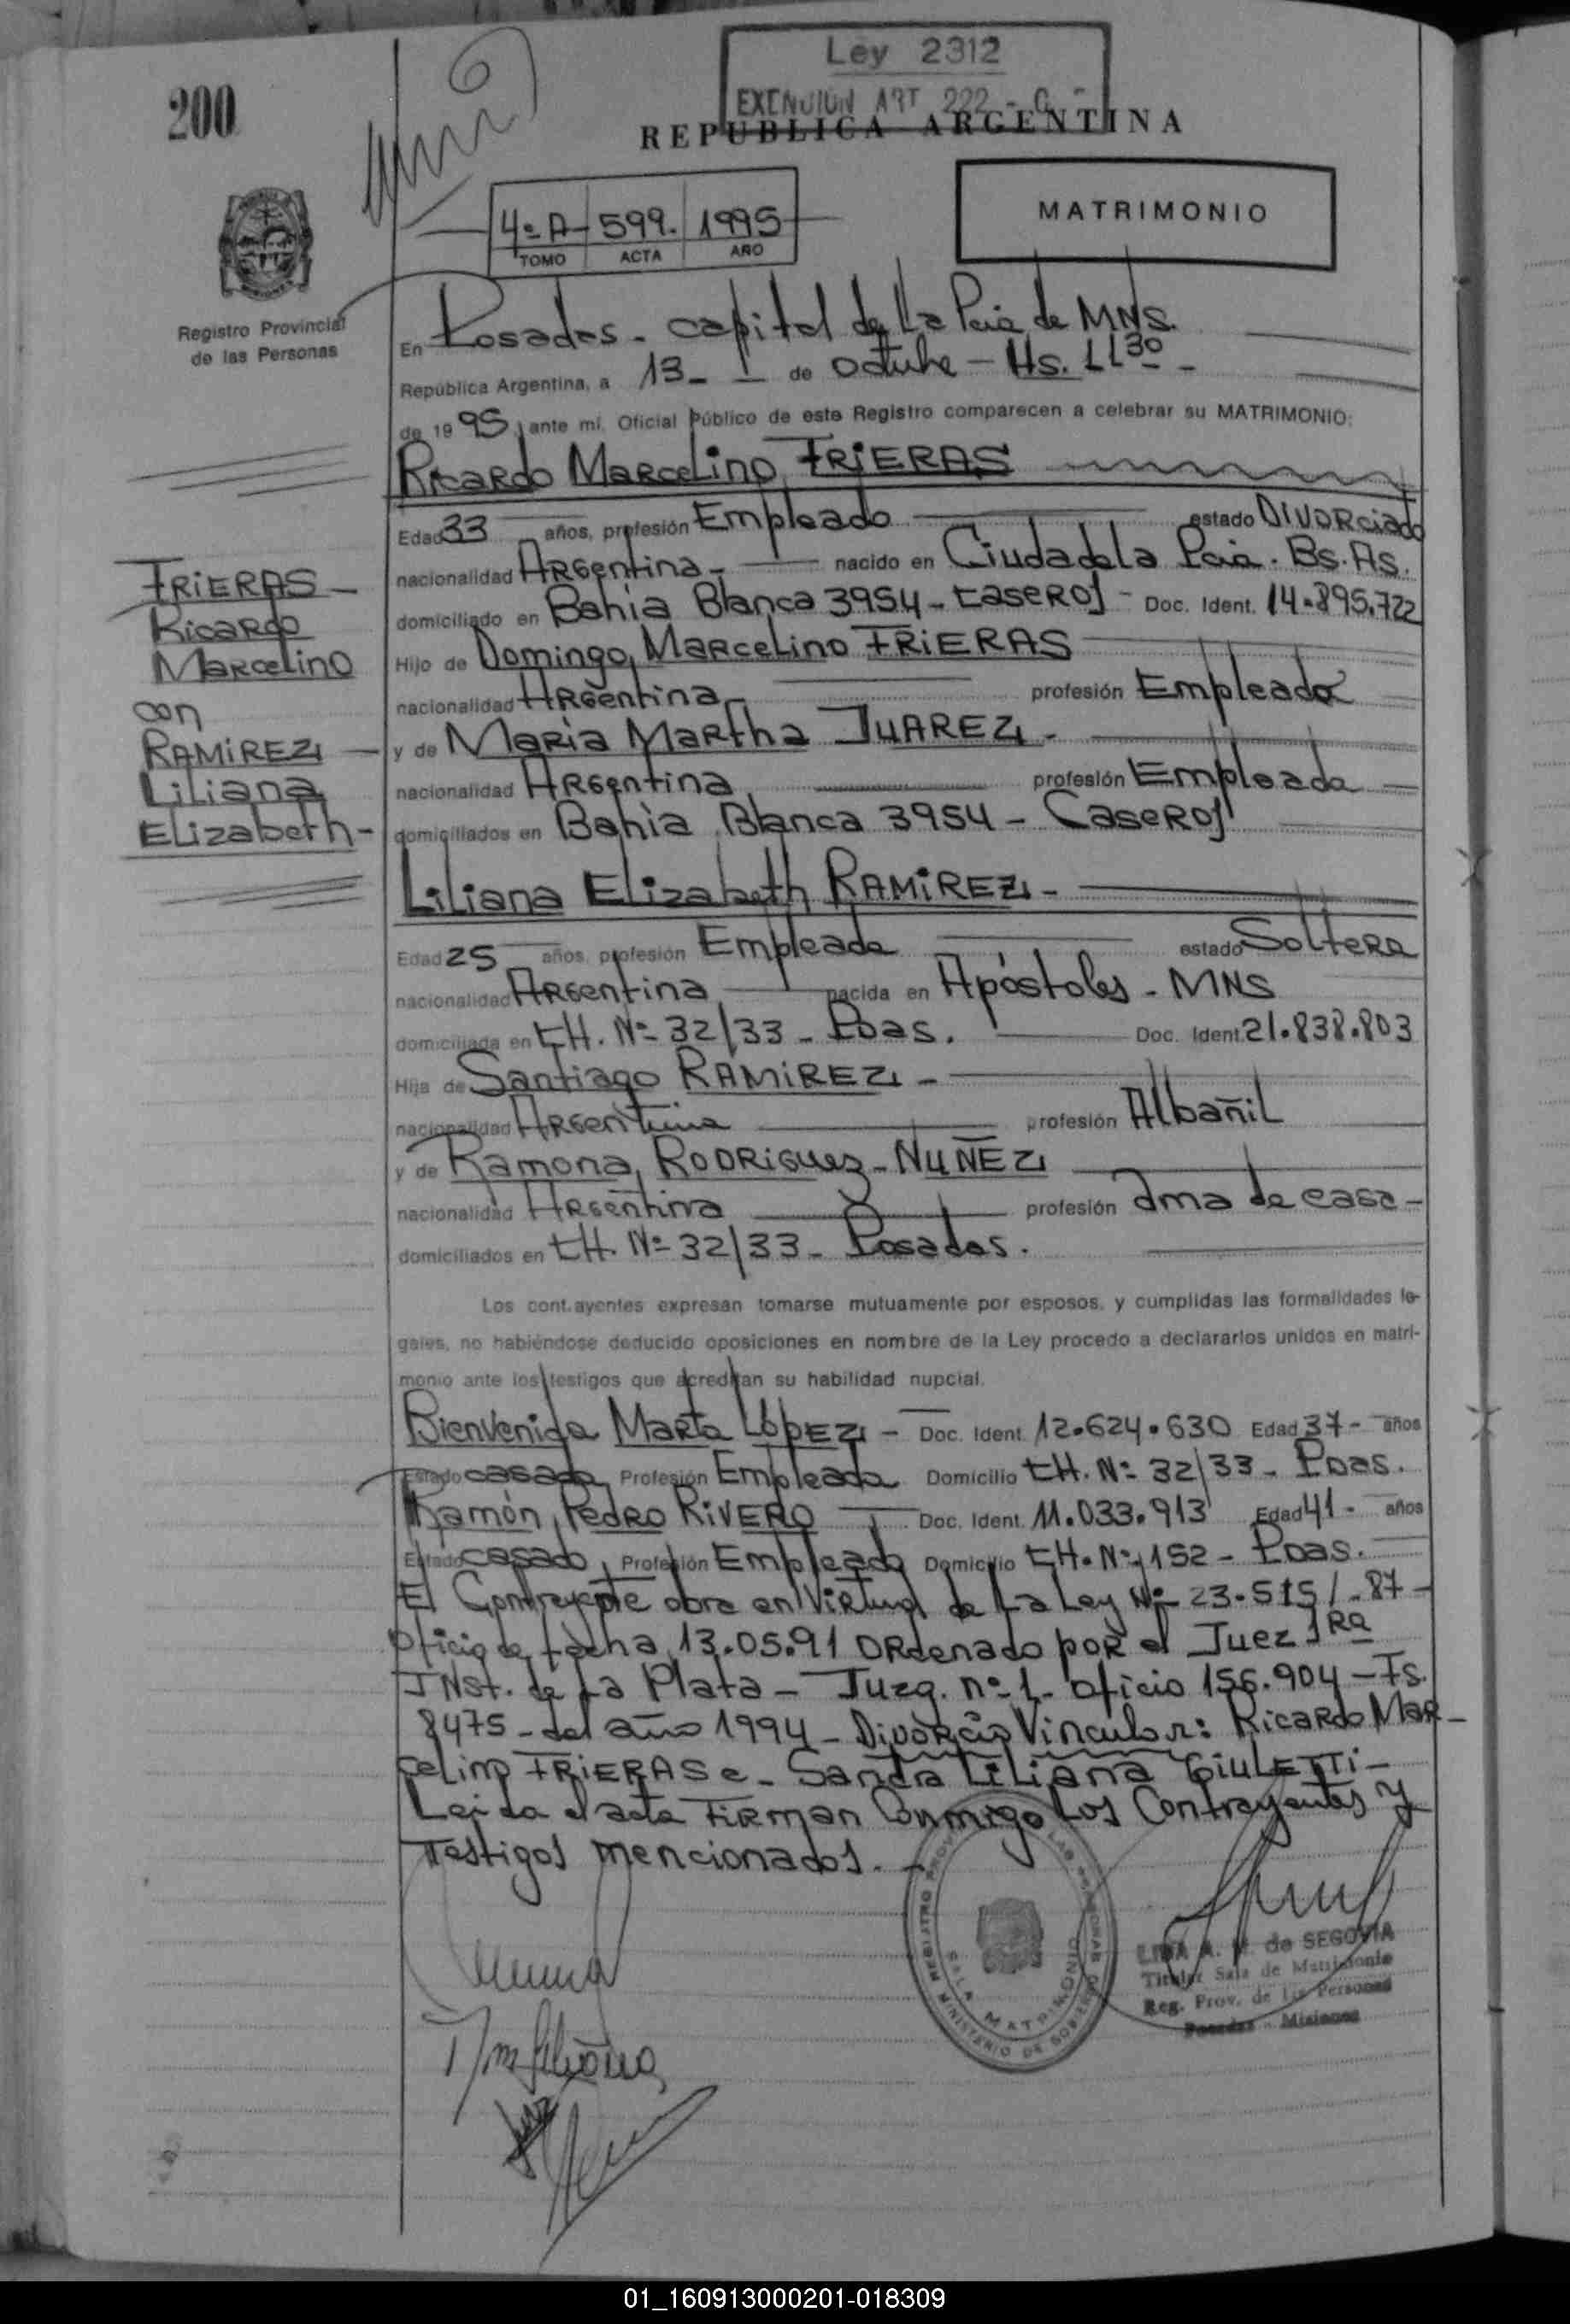 Ley 2312
EXENCIÓN ART 222 - C -
200
REPUBLICA ARGENTINA
4º A - 599. 1995
TOMO ACTA AÑO
MATRIMONIO
Registro Provincial
de las Personas
En Posadas - capital de La Pcia de MNS.
República Argentina, a 13 - de octubre - Hs. 11 30 -
de 19 95, ante mí, Oficial Público de este Registro comparecen a celebrar su MATRIMONIO:
Ricardo Marcelino FRiERAS
Edad 33 años, profesión Empleado estado Divorciado
nacionalidad Argentina - nacido en Ciudadela Pcia. Bs. As.
domiciliado en Bahia Blanca 3954 - Caseros - Doc. Ident. 14.895.722
Hijo de Domingo, Marcelino FRiERAS
nacionalidad Argentina - profesión Empleado
y de Maria Martha JUAREZ -
nacionalidad Argentina profesión Empleada
domiciliados en Bahia Blanca 3954 - Caseros
FRiERAS -
Ricardo
Marcelino
con
RAMiREZ
Liliana
Elizabeth -
Liliana Elizabeth RAMiREZ -
Edad 25 años, profesión Empleada estado Soltera
nacionalidad Argentina nacida en Apóstoles - MNS
domiciliada en CH. Nº 32/33 - Pdas. Doc. Ident. 21.838.803
Hija de Santiago RAMiREZ -
nacionalidad Argentina profesión Albañil
y de Ramona, RODRiGUEZ - NUÑEZ
nacionalidad Argentina profesión Ama de casa -
domiciliados en CH. Nº 32/33 - Posadas.
Los contrayentes expresan tomarse mutuamente por esposos, y cumplidas las formalidades le-
gales, no habiéndose deducido oposiciones en nombre de la Ley procedo a declararlos unidos en matri-
monio ante los testigos que acreditan su habilidad nupcial.
Bienvenida Marta López - Doc. Ident. 12.624.630 Edad 37 - años
Estado casada, Profesión Empleada Domicilio CH. Nº 32/33 - Pdas.
Ramón, Pedro RiVERO Doc. Ident. 11.033.913 Edad 41 - años
Estado casado, Profesión Empleado Domicilio CH. Nº 152 - Pdas.
El Contrayente obra en Virtud de La Ley Nº 23.515/.87 -
Oficio de fecha 13.05.91 Ordenado por el Juez 1Ra
INst. de La Plata - Juzg. nº 1 - oficio 156.904 - Fs.
8475 - del año 1994 - Divorcio Vincular: Ricardo Mar-
celino FRiERAS c - Sandra Liliana GiULETTi -
Leida el acta Firman Conmigo Los Contrayentes y
Testigos mencionados. -
REGISTRO PROVINCIAL DE LAS PERSONAS
SALA MATRIMONIO
MINISTERIO DE GOBIERNO
LINA A. de SEGOVIA
Titular Sala de Matrimonio
Reg. Prov. de las Personas
Posadas - Misiones
01_160913000201-018309